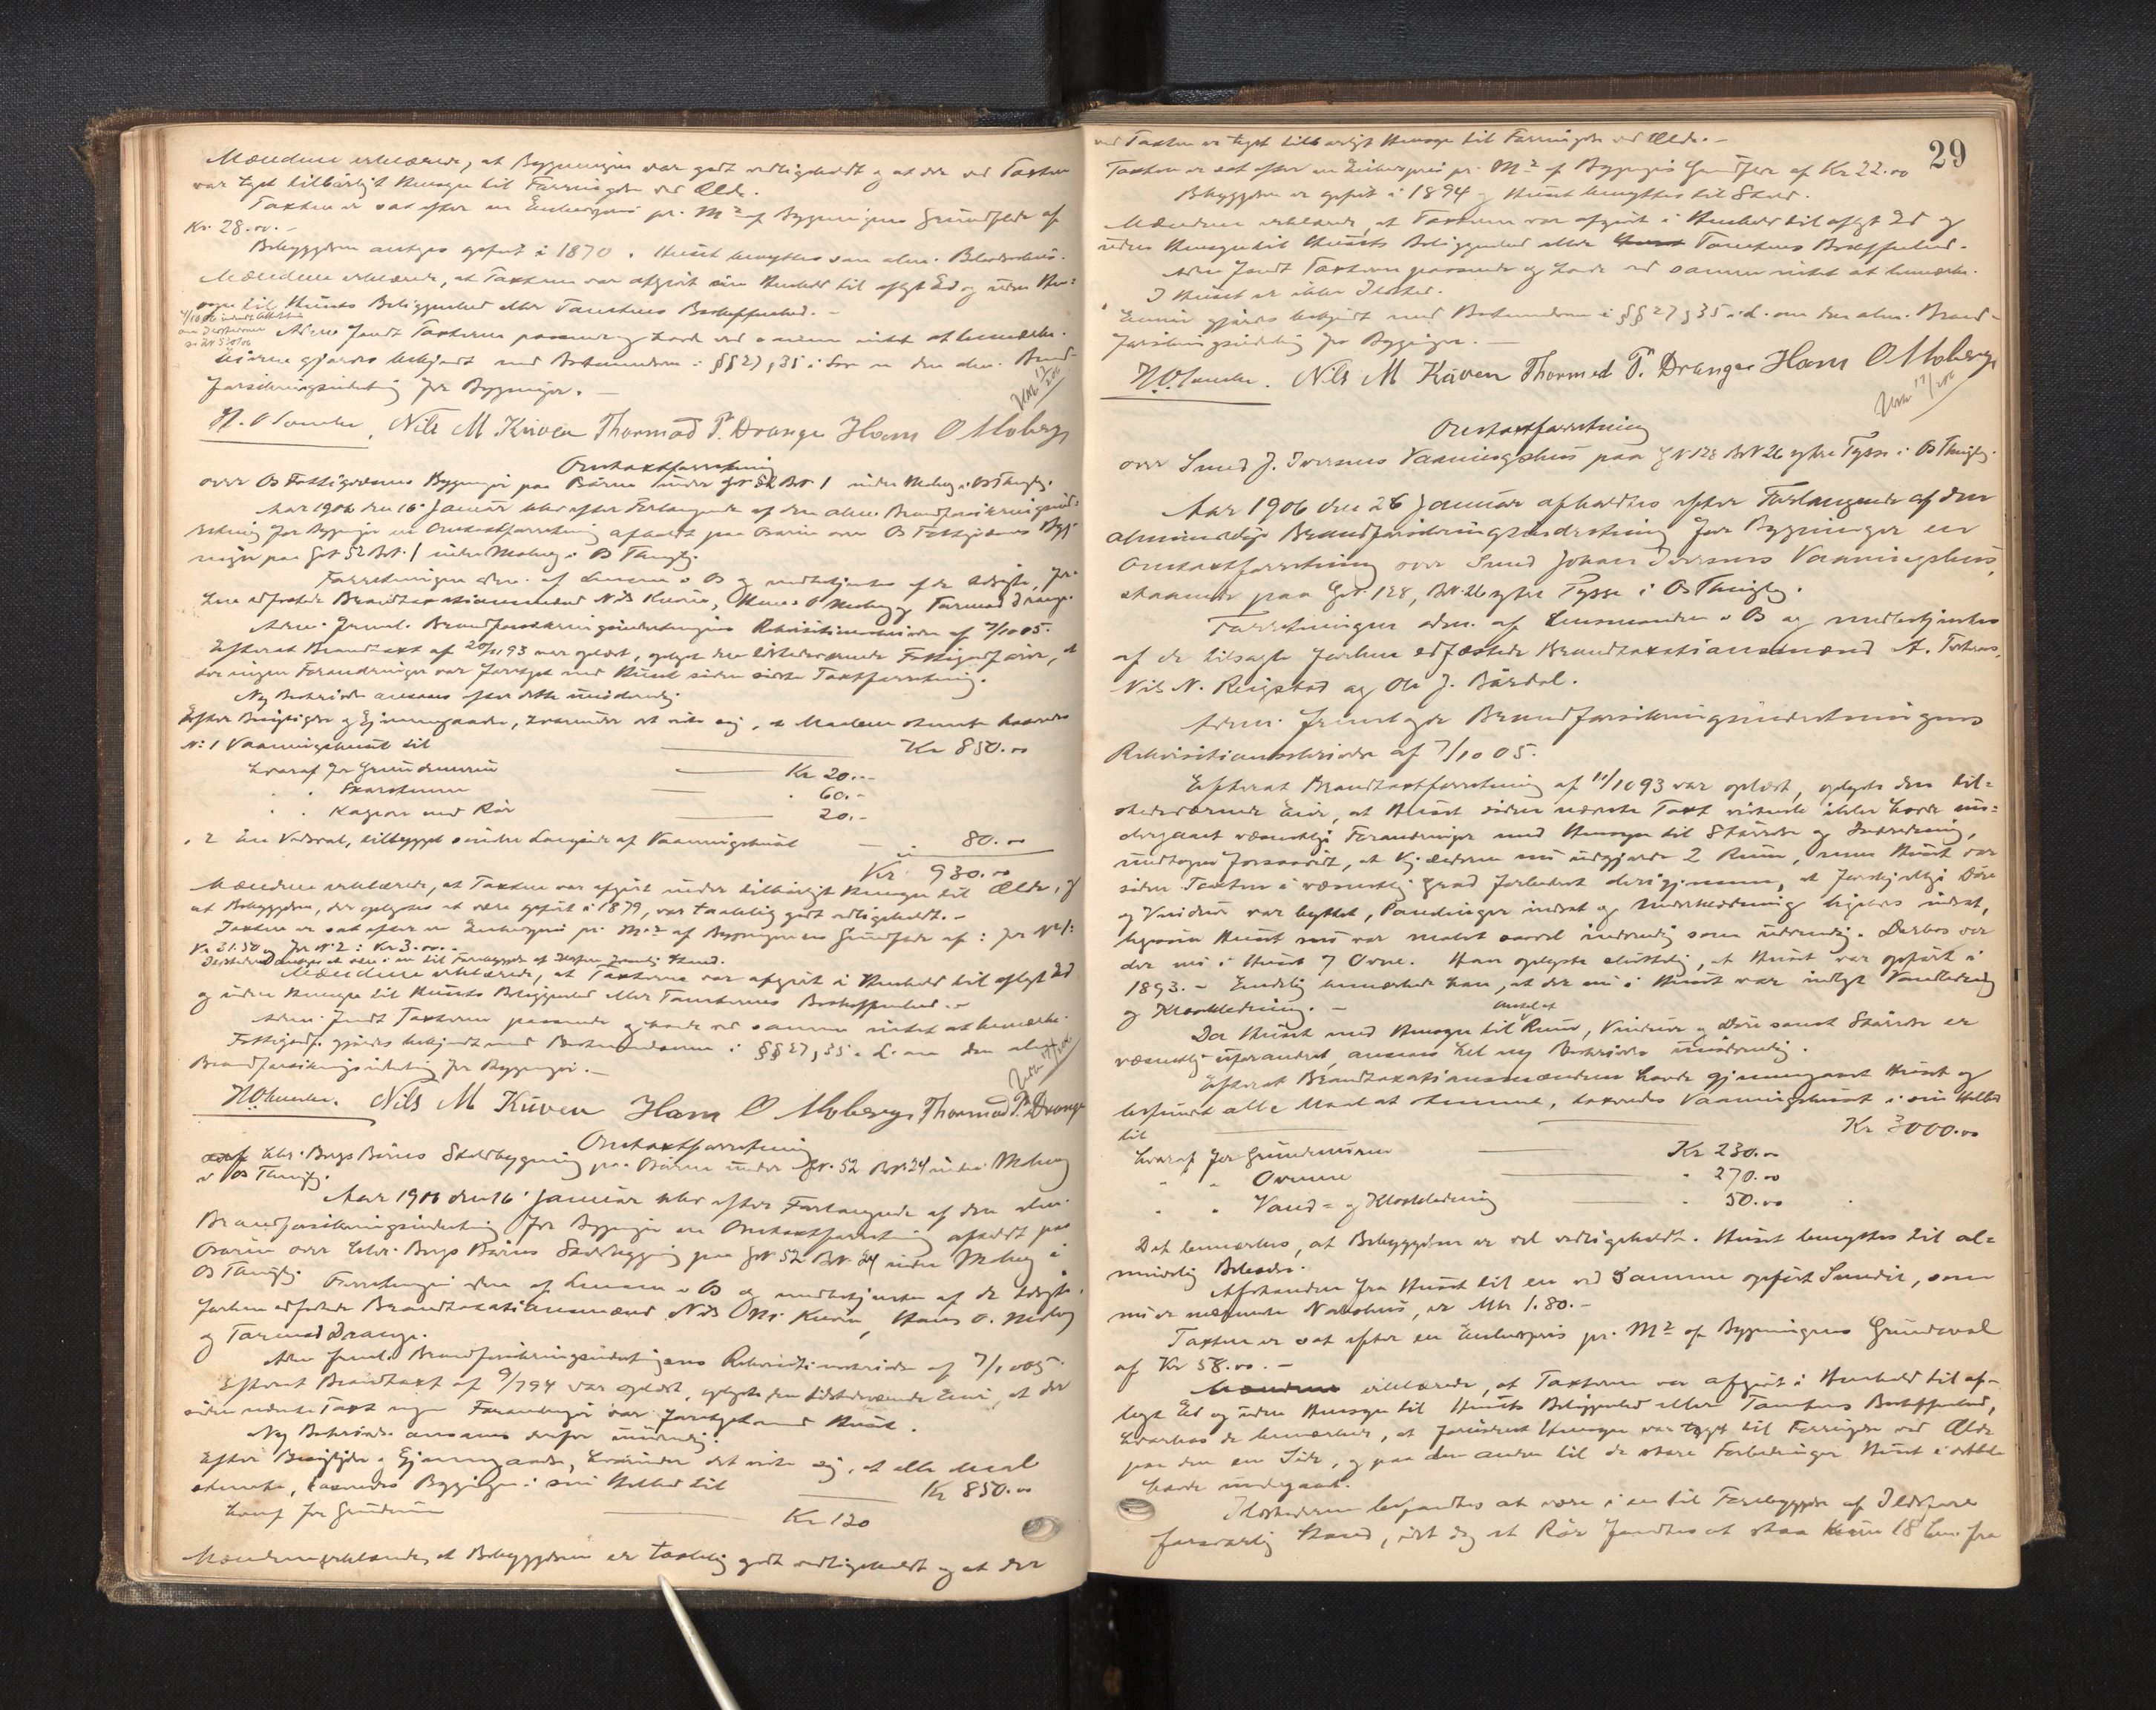 Mændene erklærede, at Bygningen var godt vedligeholdt og at der ved Taxten
var taget tilbørligt Hensyn til Forringelse ved Ælde.
Taxten er sat efter en Enhedspris pr. M² af Bygningens Grundflade af
Kr. 28.00. -
Bebyggelsen antages opført i 1870. Huset benyttes som alm. Beboelseshus.
Mændene erklærede, at Taxten var afgivt i Henhold til aflagt Ed og uden Hen=
syn til Husets Beliggenhed eller Tomtens Beskaffenhed. -
Adm. fandt Taxterne passende og havde ved samme intet at bemærke.
Eierne gjordes bekjendt med Bestemmelserne i §§ 27, 35 i Lov om den alm. Brand-
forsikringsindretning for Bygninger. -
N. O Nils M Kuven Thormod P. Drange Hans O Moberg
Omtaxtforretning
over Os Fattigvæsens Bygninger paa Øvrum under Gr. 52 Br. 1 indre Moberg i Os Thinglag.
Aar 1906 den 16. Januar blev efter Forlangende af den alm. Brandforsikringsind-
retning for Bygninger en Omtaxtforretning afholdt paa over Os Fattigvæsens Byg-
ninger paa Gr. 52 Br. 1 indre Moberg i Os Thinglag.
Forretningen adm. af Lensm. i Os og medbetjentes af de tilsagte, for-
hen edfæstede Brandtaxationsmænd Nils Kuven, Hans O Moberg og Tormod Drange.
Adm. freml. Brandforsikringsindretningens Rekvisitionsskrivelse af 7/10 05.
Efterat Brandtaxt af 20/11 93 var oplæst, oplyste den tilstedeværende Fattigforst., at
der ingen Forandringer var foretaget med Huset siden sidste Taxtforretning.
Ny Beskrivelse ansaaes efter dette unødvendig.
Efter Besigtigelse og Gjennemgaaelse, hvorunder det viste sig, at Maalene stemte, taxeredes
No: 1 Vaaningshuset til Kr 850.00
hvoraf for Grundmuren Kr 20.--
" " Skorstenen " 60.-
" " Kakkelovn med Rør 20.-
" 2 en Vedbod, tilbygget søndre Langside af Vaaningshuset - 80.00
Kr. 930.00
Mændene erklærede, at Taxten var afgivt under tilbørligt Hensyn til Ælde, og
at Bebyggelsen, der oplystes at være opført i 1879, var taalelig godt vedligeholdt. -
Taxten er sat efter en Enhedspris pr. M² af Bygningernes Grundflade af: for No 1:
Kr 21.50 og for No 2: Kr 3.00. -
Mændene erklærede, at Taxterne var afgivt i Henhold til aflagt Ed
og uden Hensyn til Husets Beliggenhed eller Tomternes Beskaffenhed. -
Adm. fandt Taxterne passende og havde ved samme intet at bemærke.
Fattigforst. gjordes bekjendt med Bestemmelserne i §§ 27, 35 i L. om den alm.
Brandforsikringsindretning for Bygninger. -
Nils M Kuven Hans O Moberg Thormod P. Drange
Omtaxtforretning
Skolebygning paa under Gr. 52 Br. 24 indre Moberg
i Os Thinglag.
Aar 1906 den 16. Januar blev efter Forlangende af den alm.
Brandforsikringsindretning for Bygninger en Omtaxtforretning afholdt paa
over Skolebygning paa Gr 52 Br. 24 indre Moberg i
Os Thinglag. Forretningen adm. af Lensm. i Os og medbetjentes af de tilsagte,
forhen edfæstede Brandtaxationsmænd Nils M. Kuven, Hans O. Moberg
og Tormod Drange.
Adm. freml. Brandforsikringsindretningens Rekvisitionsskrivelse af 7/10 05.
Efterat Brandtaxt af 9/7 94 var oplæst, oplyste den tilstedeværende Eier, at der
siden nævnte Taxt ingen Forandringer var foretaget med Huset.
Ny Beskrivelse ansaaes derfor unødvendig.
Efter Besigtigelse og Gjennemgaaelse, hvorunder det viste sig, at alle Maal
stemte, taxeredes Bygningen i sin Helhed til Kr 850.00
hvoraf for Grundmur Kr 120
Mændene erklærede, at Bebyggelsen er taalelig godt vedligeholdt og at der
29
ved Taxten er taget tilbørligt Hensyn til Forringelse ved Ælde. -
Taxten er sat efter en Enhedspris pr. M² af Bygningens Grundflade af Kr 22.00
Bebyggelsen er opført i 1894 og Huset benyttes til Skole.
Mændene erklærede, at Taxterne var afgivt i Henhold til aflagt Ed og
uden Hensyn til Husets Beliggenhed eller Tomtens Beskaffenhed.
Adm. fandt Taxterne passende og havde ved samme intet at bemærke.
I Huset er ikke Ildsted.
Eieren gjordes bekjendt med Bestemmelserne i §§ 27 & 35 i L. om den alm. Brand-
forsikringsindretning for Bygninger. -
Nils M Kuven Thormod P. Drange Hans O Moberg
Omtaxtforretning
over Smed J. Iversens Vaaningshus paa G No 128 B No 26 ytre Tysse i Os Thinglag.
Aar 1906 den 26 Januar afholdtes efter Forlangende af den
almindelige Brandforsikringsindretning for Bygninger en
Omtaxtforretning over Smed Johan Iversens Vaaningshus,
staaende paa Gr. 128, Br. 26 ytre Tysse i Os Thinglag.
Forretningen adm. af Lensmanden i Os og medbetjentes
af de tilsagte forhen edfæstede Brandtaxationsmænd
Nils N. Reigstad og Ole J. Bårdal.
Adm. fremlagde Brandforsikringsindretningens
Rekvisitionsskrivelse af 7/10 05.
Efterat Brandtaxtforretning af 11/10 93 var oplæst, oplyste den til=
stedeværende Eier, at Huset siden nævnte Taxt vistnok ikke havde un=
dergaaet væsentlige Forandringer med Hensyn til Størrelse og Indredning,
undtagen forsaavidt, at Kjælderen nu udgjorde 2 Rum, men Huset var
siden Taxten i væsentlig Grad forbedret derigjennem, at forskjellige Døre
og Vinduer var byttet, Paneling indsat og Underklædning ligeledes indsat,
ligesom Huset nu var malet saavel indvendig som udvendig. Derhos var
der nu i Huset 7 Ovne. Han oplyste sluttelig, at Huset var opført i
1893. - Endelig bemærkede han, at der nu i Huset var indlagt Vandledning
og Kloakledning. -
Da Huset med Hensyn til Antal af Rum, Vinduer og Døre samt Størrelse er
væsentlig uforandret, ansaaes hel ny Beskrivelse unødvendig.
Efterat Brandtaxationsmændene havde gjennemgaaet Huset og
befundet alle Maal at stemme, taxeredes Vaaningshuset i sin Helhed
til Kr 3000.00
hvoraf for Grundmuren Kr 230.00
" " Ovnene " 270.00
" " Vand= og Kloakledning " 50.00
Det bemærkes, at Bebyggelsen er vel vedligeholdt. Huset benyttes til al=
mindelig Beboelse.
Afstanden fra Huset til en ved samme opført Smedie, som
nu er nærmeste Nabohus, er Mtr 1.80. -
Taxten er sat efter en Enhedspris pr. M² af Bygningens Grundareal
af Kr 58.00. -
Mændene erklærede, at Taxterne var afgivt i Henhold til af-
lagt Ed og uden Hensyn til Husets Beliggenhed eller Tomtens Beskaffenhed,
hvorhos de bemærkede, at fornødent Hensyn var taget til Forringelse ved Ælde
paa den ene Side, og paa den anden til de store Forbedringer Huset i det hele
havde undergaaet.
Ildstederne befandtes at være i en til Forebyggelse af Ildsfare
forsvarlig Stand, idet dog et Rør fandtes at staa kun 18 Cm. fra